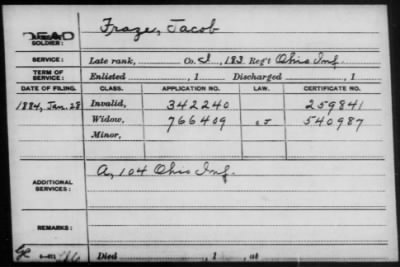 Fraze, Jacob
SOLDIER:
SERVICE: Late rank, Co. I, 183 Reg't Ohio Inf.
TERM OF SERVICE: Enlisted , 1 Discharged , 1
DATE OF FILING. CLASS. APPLICATION NO. LAW. CERTIFICATE NO.
1884, Jan. 28 Invalid, 342240 259841
Widow, 766409 540987
Minor,
ADDITIONAL SERVICES: A, 104 Ohio Inf.
REMARKS:
Died , 1 , at